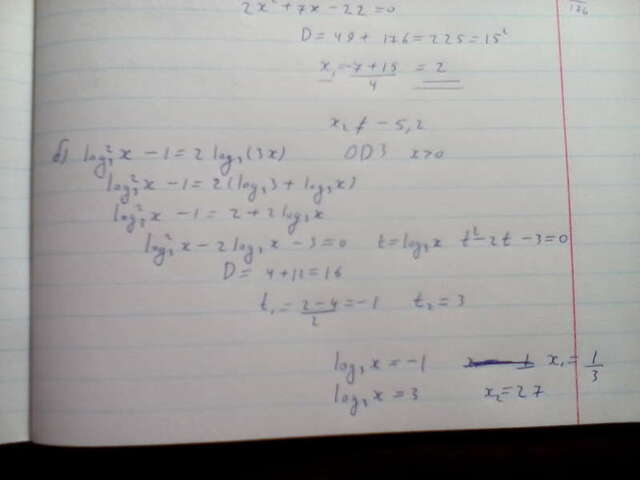 2x² + 7x - 22 = 0
176
D = 49 + 176 = 225 = 15²
x₁ = (-7 + 15)/4 = 2
x₂ ≠ - 5,2
б) log₃² x - 1 = 2 log₃ (3x) ОДЗ x>0
log₃² x - 1 = 2 (log₃ 3 + log₃ x)
log₃² x - 1 = 2 + 2 log₃ x
log₃² x - 2 log₃ x - 3 = 0 t = log₃ x t² - 2t - 3 = 0
D = 4 + 12 = 16
t₁ = (2 - 4)/2 = -1 t₂ = 3
log₃ x = -1 x₁ = 1/3
log₃ x = 3 x₂ = 27